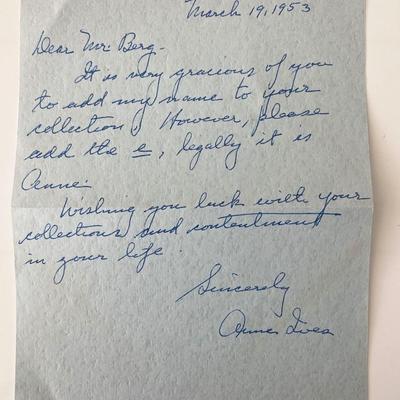 March 19, 1953
Dear Mr. Berg-
It is very gracious of you
to add my name to your
collection. However, please
add the e, legally it is
Anne.
Wishing you luck with your
collections and contentment
in your life.
Sincerely
Anne Ives